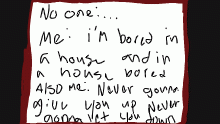 No one:...
Me: i'm bored in
a house and in
a house bored
Also me: Never gonna
give you up Never
gonna let you down